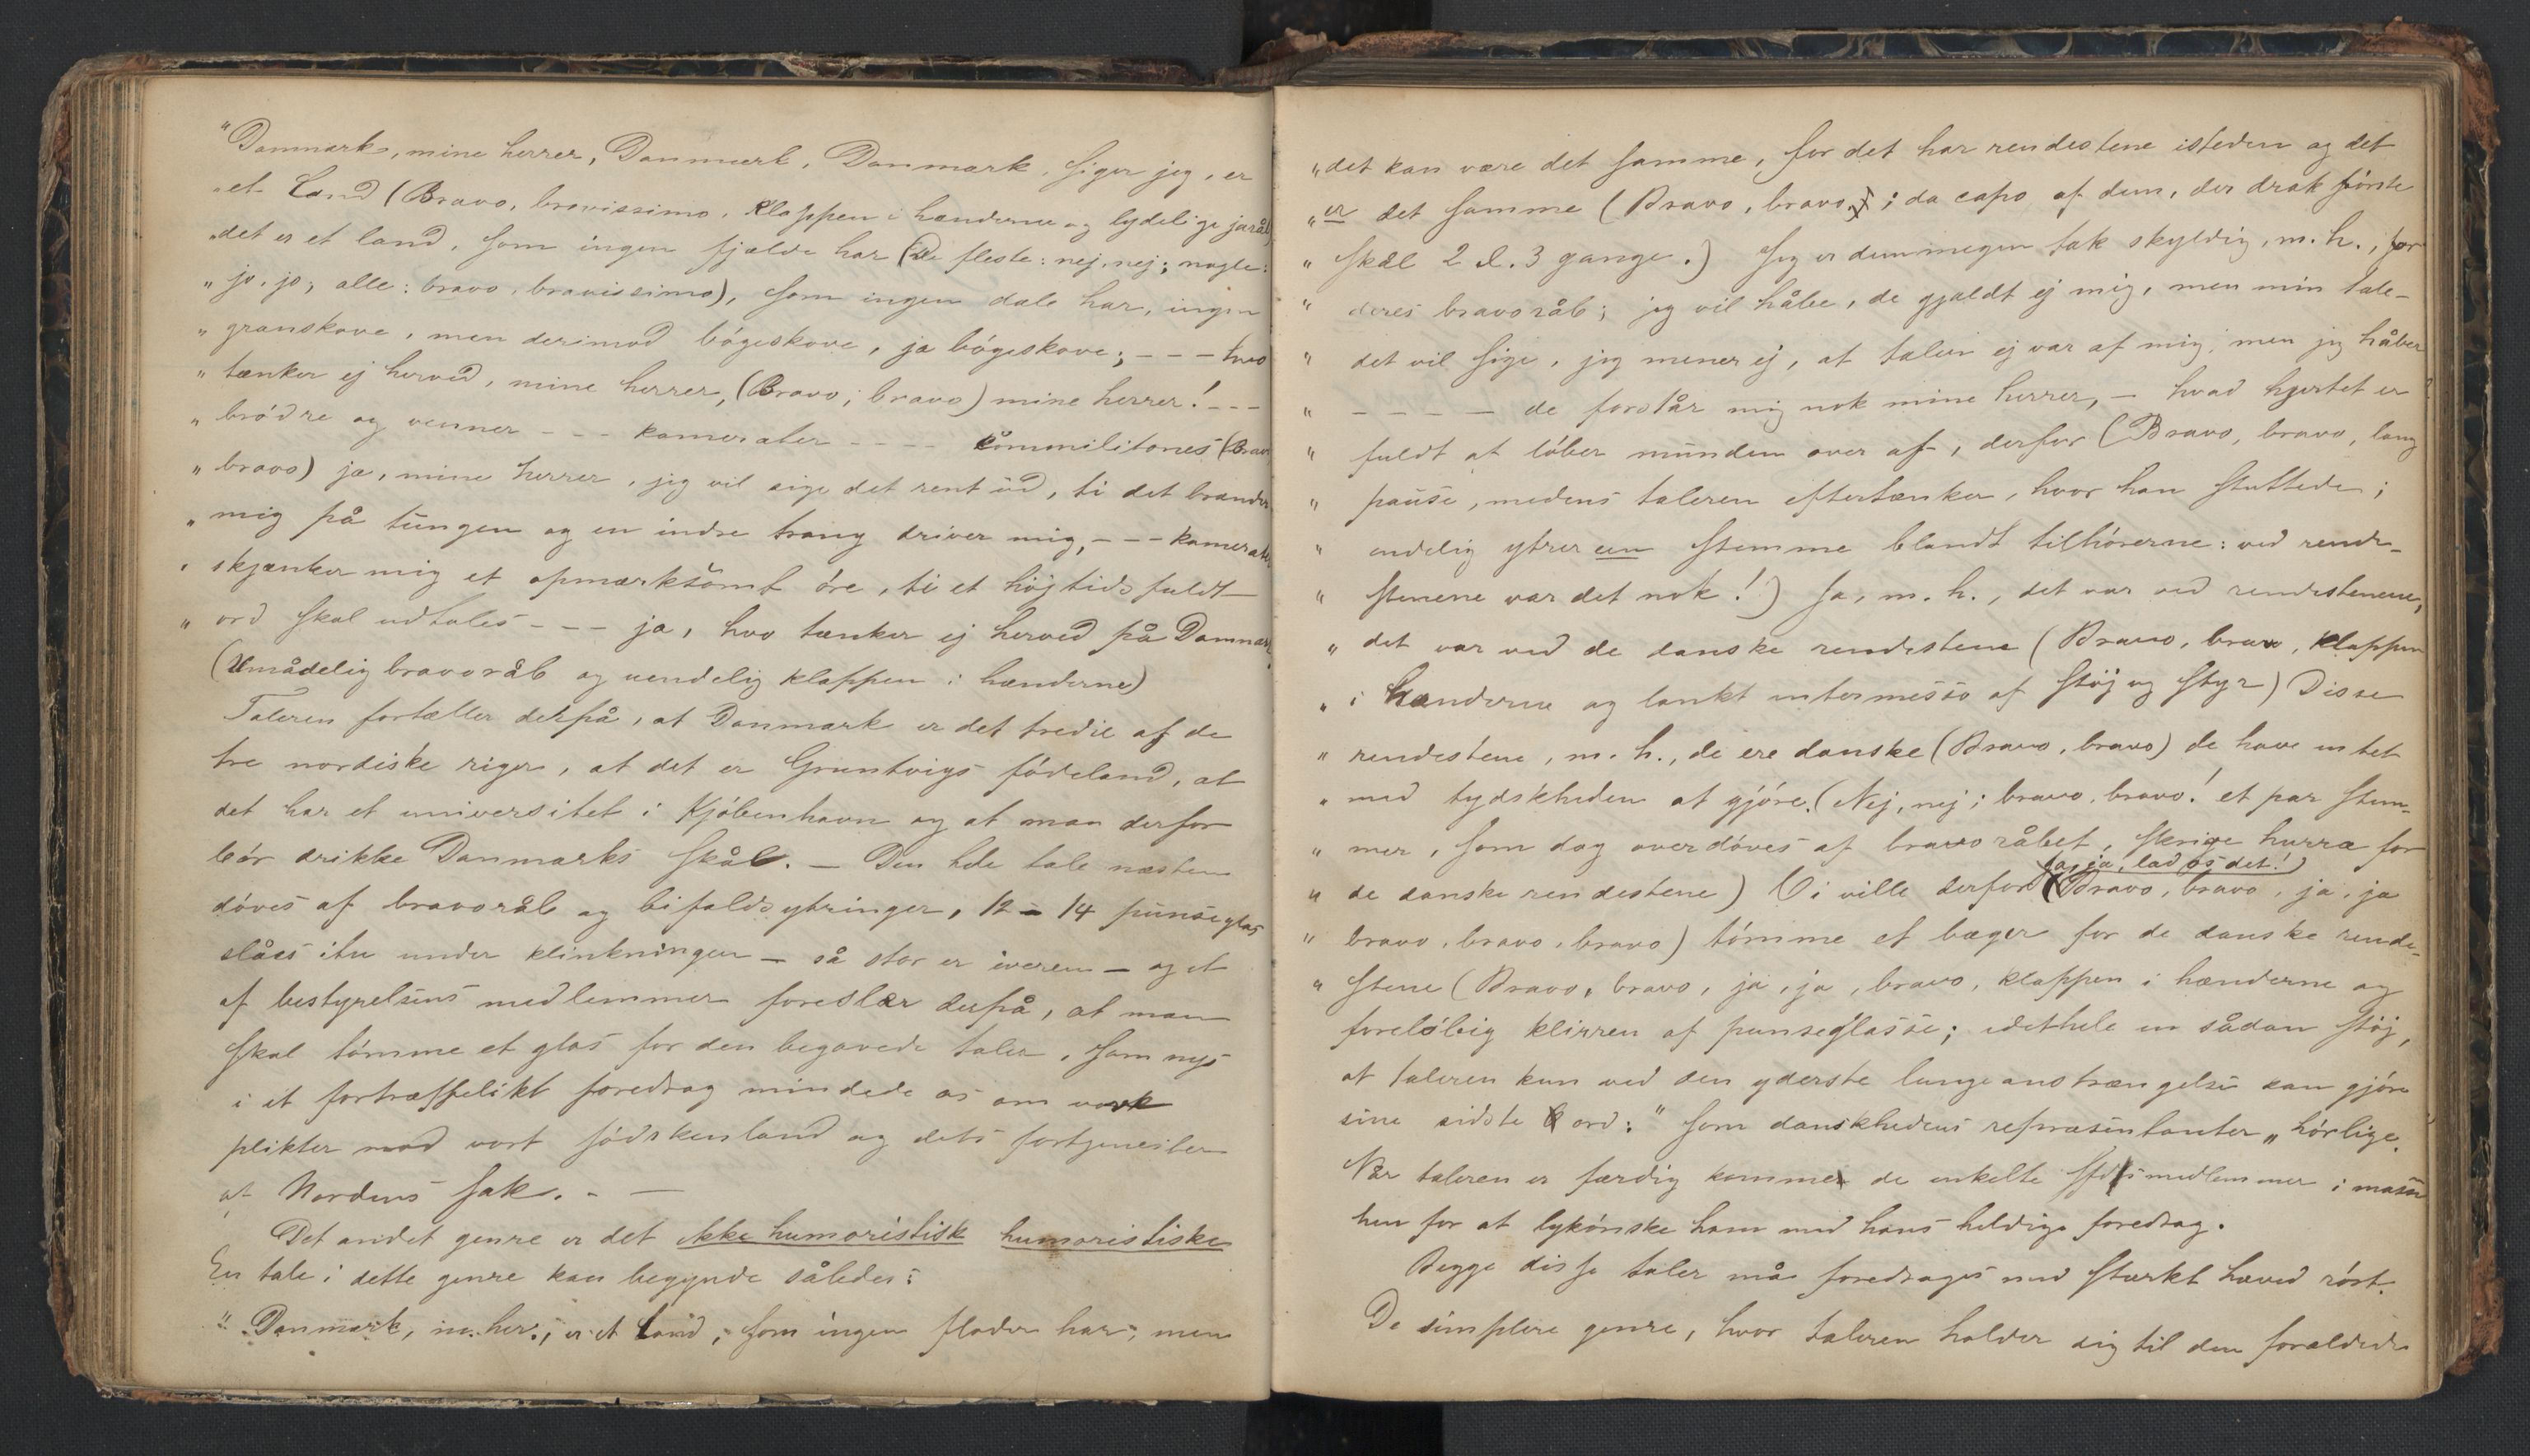 "Danmark, mine herrer, Danmark, Danmark, siger jeg, er
"et Land (Bravo, bravissimo, klappen i hænderne og lydelige jaråb)
"det er et land, som ingen fjælde har (De fleste: nej, nej; nogle:
"jo, jo; alle: bravo, bravissimo), som ingen dale har, ingen
"granskove, men derimod bógeskove, ja bógeskove; - - - hvo
"tænker ej herved, mine herrer, (Bravo; bravo) mine herrer! - - -
"bródre og venner - - - kamerater - - - - kommilitones (Bravo
"bravo) ja, mine herrer, jeg vil sige det rent ud, ti det brænder
"mig på tungen og en indre trang driver mig, - - - kamerater
"skjænker mig et opmærksomt óre, ti et højtidsfuldt
"ord skal udtales - - - ja, hvo tænker ej herved på Danmark
(Umådelig bravoråb og uendelig klappen i hænderne)
Taleren fortæller derpå, at Danmark er det tredie af de
tre nordiske riger, at det er Gruntvigs fódeland, at
det har et universitet i Kjóbenhavn og at man derfor
bór drikke Danmarks skål. — Den hele tale næsten
dóves af bravoråb og bifaldsytringer, 12 - 14 punseglas
slåes itu under klinkningen — så stor er iveren — og et
af bestyrelsens medlemmer foreslår derpå, at man
skal tómme et glas for den begavede taler, som nys
i et fortræffelikt foredrag mindede os om vore
plikter mod vort fódskenland og dets fortjenester
af Nordens sak. - —
Det andet genre er det ikke humoristisk humoristiske
En tale i dette genre kan begynde således:
"Danmark, m. her., er et land, som ingen floder har, men
"det kan være det samme, for det har rendestene isteden og det
"er det samme (Bravo, bravo; da capo af dem, der drak fórste
"skål 2 l. 3 gange.) Jeg er dem megen tak skyldig, m. h., for
"deres bravoråb; jeg vil håbe, de gjaldt ej mig, men min tale-
"det vil sige, jeg mener ej, at talen ej var af mig, men jeg håber
"- - - - - de forstår mig nok mine herrer, - hvad hjertet er
"fuldt af lóber munden over af, derfor (Bravo, bravo, lang
"pause, medens taleren eftertænker, hvor han sluttede;
"endelig ytrer een stemme blandt tilhórerne: ved rende-
"stenene var det nok!) Ja, m. h., det var ved rendestenene,
"det var ved de danske rendestene (Bravo, bravo, klappen
"i hænderne og lankt intermesso af stój og styr) Disse
"rendestene, m. h., de ere danske (Bravo, bravo) de have intet
"med tydskheden at gjóre. (Nej, nej; bravo, bravo! et par stem-
"mer, som dog overdóves af bravoråbet, skrige hurra for
ja, ja, lad os det!)
"de danske rendestene) Vi ville derfor (Bravo, bravo, ja, ja
"bravo, bravo, bravo) tómme et bæger for de danske rende-
"stene (Bravo, bravo, ja, ja, bravo, klappen i hænderne og
forelóbig klirren af punseglasse; idethele en sådan stój,
at taleren kun ved den yderste lungeanstrængelse kan gjóre
sine sidste ord: "som danskhedens repræsentanter" hórlige.
Når taleren er færdig komme de enkelte sfdsmedlemmer i masse
hen for at lykónske ham med hans heldige foredrag.
Begge disse taler må foredrages med stærkt hævet róst.
De simplere genre, hvor taleren holder sig til den forældede